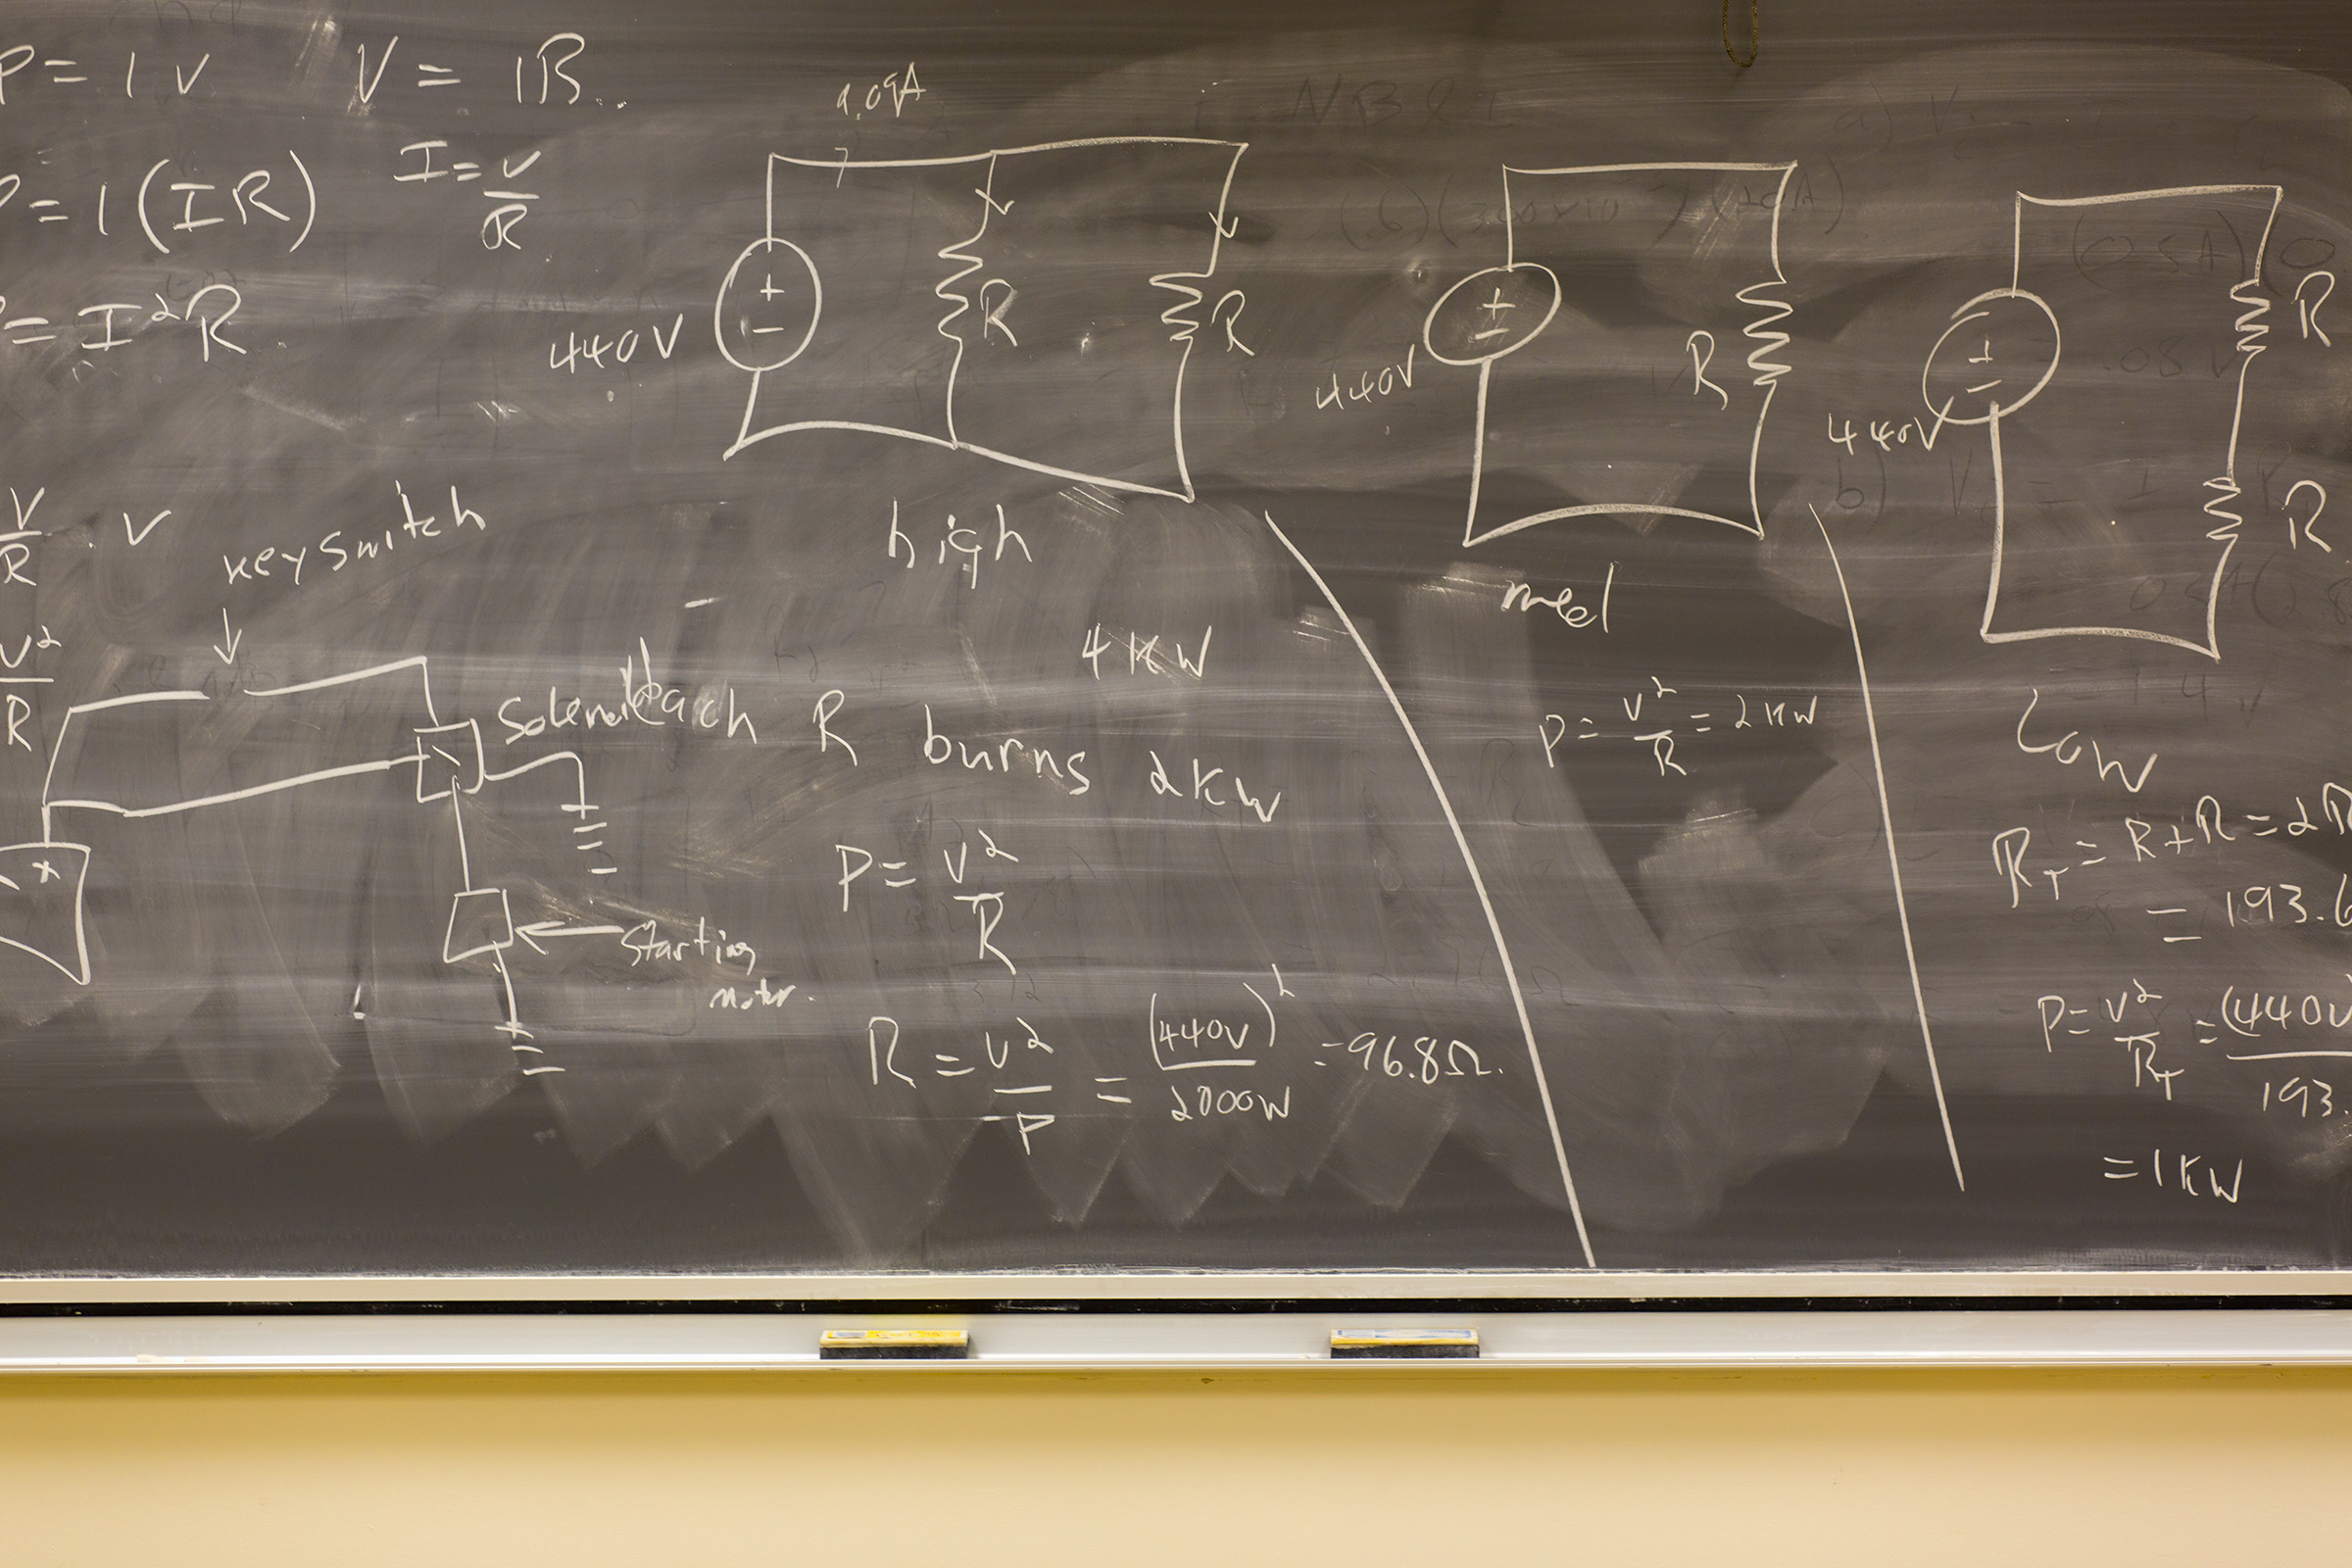 P = IV
V = IR
P = I(IR)
I = V/R
= I²R
V/R . V
V²/R
key switch
Solenoid
starting
motor.
+
9.09A
440V
+
-
R
R
high
4KW
each R burns 2KW
P = V²/R
R = V²/P = (440V)²/2000W = 96.8Ω.
440V
+
-
R
med
P = V²/R = 2KW
440V
+
-
R
R
Low
R_T = R+R = 2R
= 193.6
P = V²/R_T = (440V
193.
= 1KW